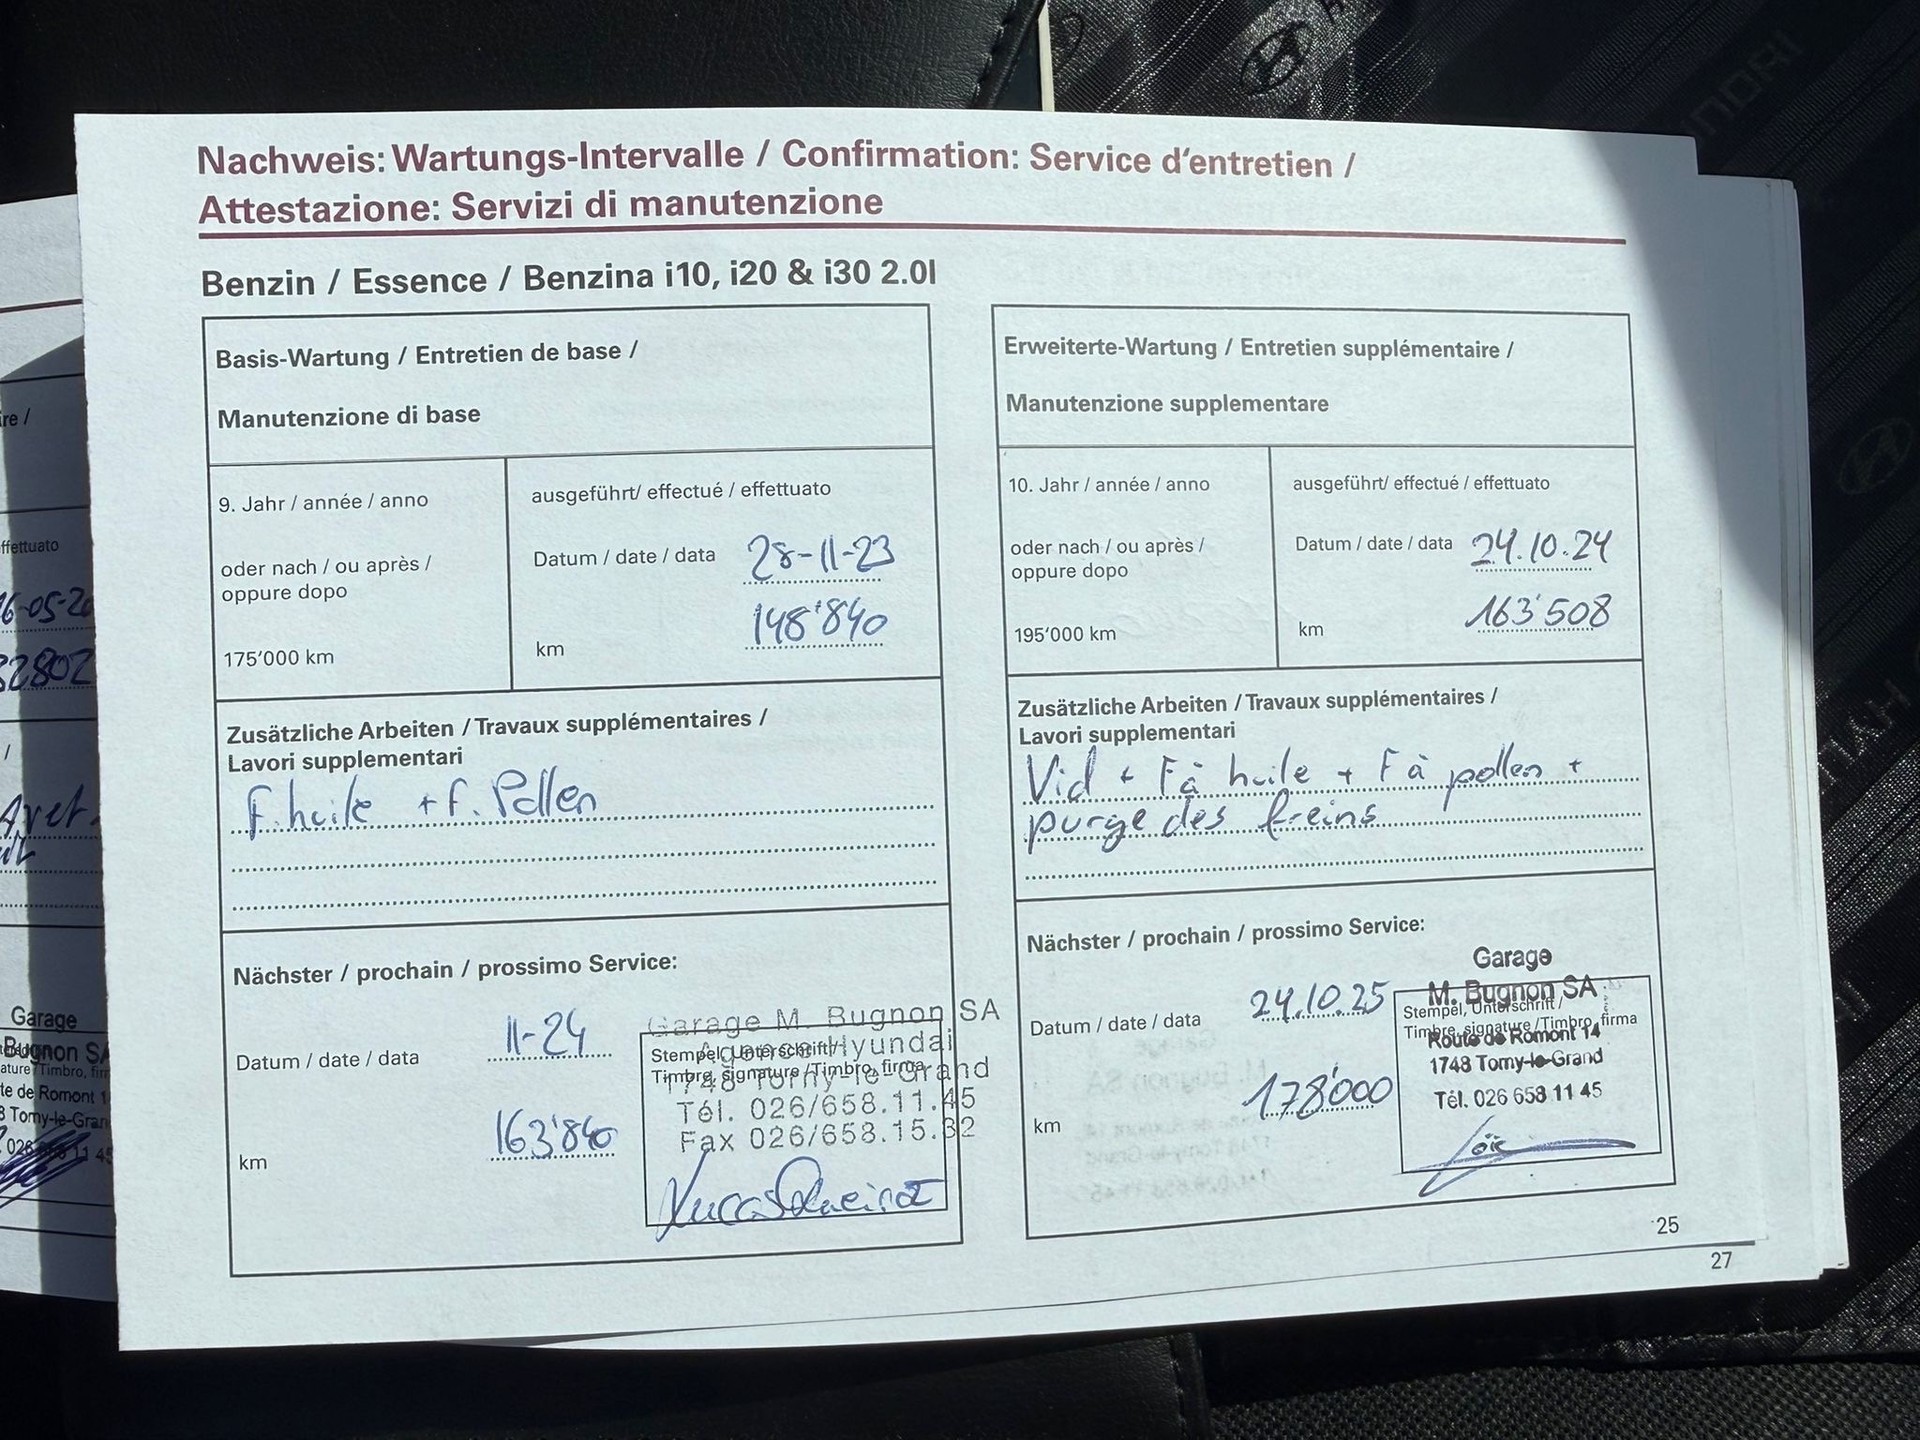 Nachweis: Wartungs-Intervalle / Confirmation: Service d'entretien /
Attestazione: Servizi di manutenzione
Benzin / Essence / Benzina i10, i20 & i30 2.0l
Basis-Wartung / Entretien de base /
Manutenzione di base
9. Jahr / année / anno
oder nach / ou après /
oppure dopo
175'000 km
ausgeführt/ effectué / effettuato
Datum / date / data 28-11-23
km 148'840
Zusätzliche Arbeiten / Travaux supplémentaires /
Lavori supplementari
F. huile + F. Pollen
Nächster / prochain / prossimo Service:
Datum / date / data 11-24
km 163'840
Garage M. Bugnon SA
Agence Hyundai
1748 Torny-le-Grand
Tél. 026/658.11.45
Fax 026/658.15.82
Stempel, Unterschrift/
Timbre, signature /Timbro, firma
Erweiterte-Wartung / Entretien supplémentaire /
Manutenzione supplementare
10. Jahr / année / anno
oder nach / ou après /
oppure dopo
195'000 km
ausgeführt/ effectué / effettuato
Datum / date / data 24.10.24
km 163'508
Zusätzliche Arbeiten / Travaux supplémentaires /
Lavori supplementari
Vid + F à huile + F à pollen +
purge des freins
Nächster / prochain / prossimo Service:
Datum / date / data 24.10.25
km 178'000
Garage
M. Bugnon SA
Stempel, Unterschrift /
Timbre, signature /Timbro, firma
Route de Romont 14
1748 Torny-le-Grand
Tél. 026 658 11 45
25
27
re /
ffettuato
6-05-20
32802
/
Garage
Bugnon SA
ature /Timbro, fir
te de Romont 1
8 Torny-le-Gran
026 11 45